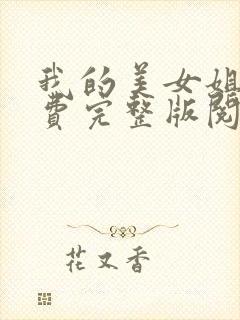 我的美女姐
费完整版阅
花又香